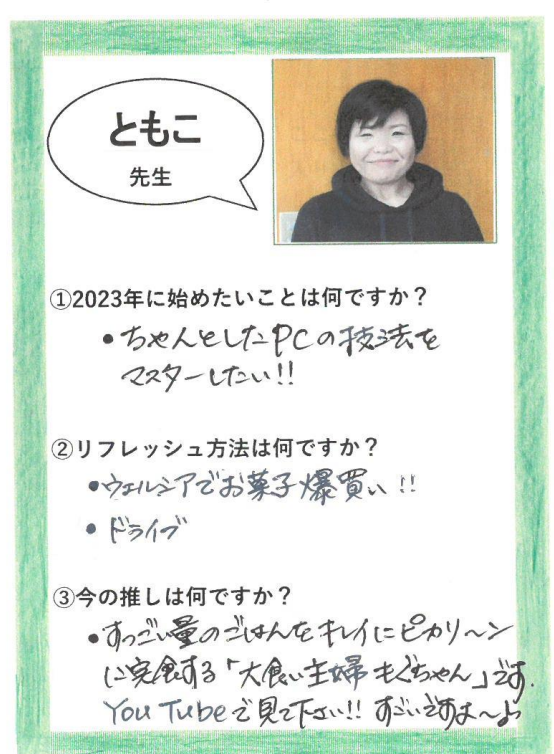 ともこ
先生
①2023年に始めたいことは何ですか？
・ちゃんとしたPCの技法を
マスターしたい!!
②リフレッシュ方法は何ですか？
・ウェルシアでお菓子爆買い!!
・ドライブ
③今の推しは何ですか？
・すっごい量のごはんをキレイにピカリ〜ン
に完食する「大食い主婦もぐちゃん」です。
You Tubeで見て下さい!! すごいですよ〜